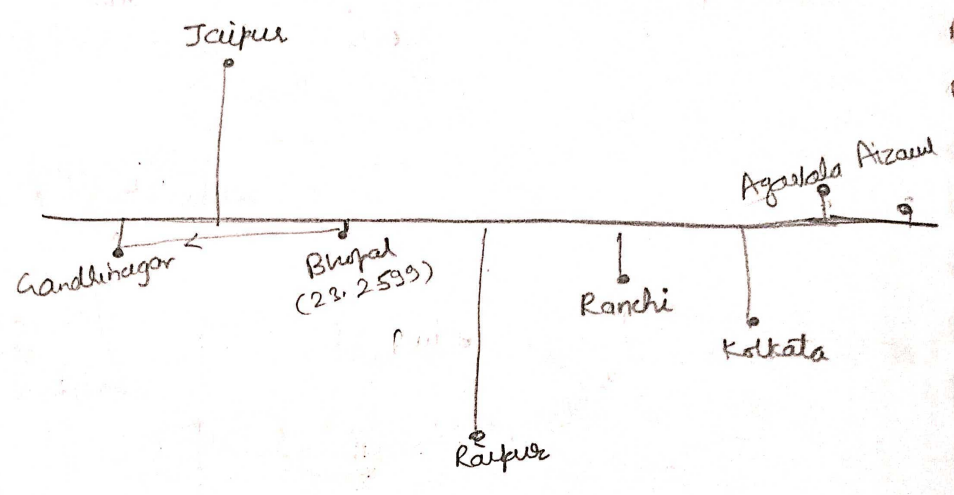 Jaipur
Agartala Aizawl
Gandhinagar
Bhopal
(23.2599)
Ranchi
Kolkata
Raipur